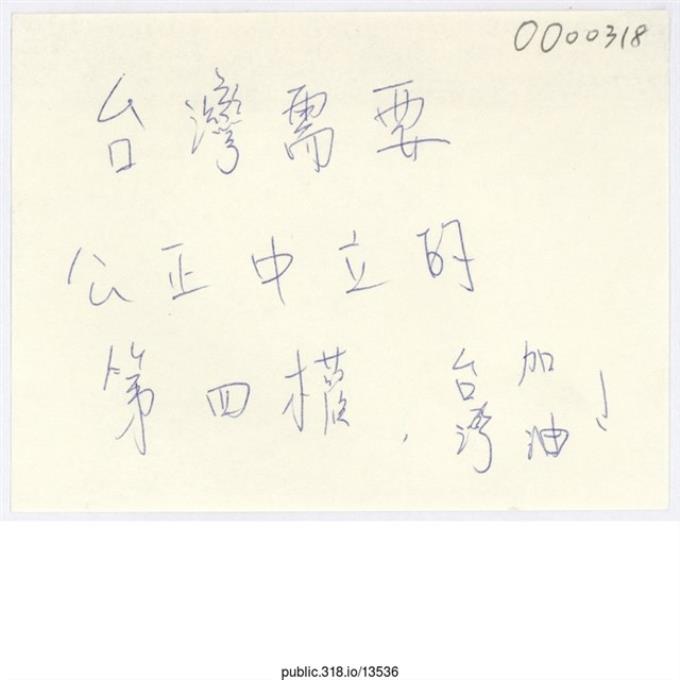 0000318
台灣需要
公正中立的
第四權,台灣加油!
public.318.io/13536